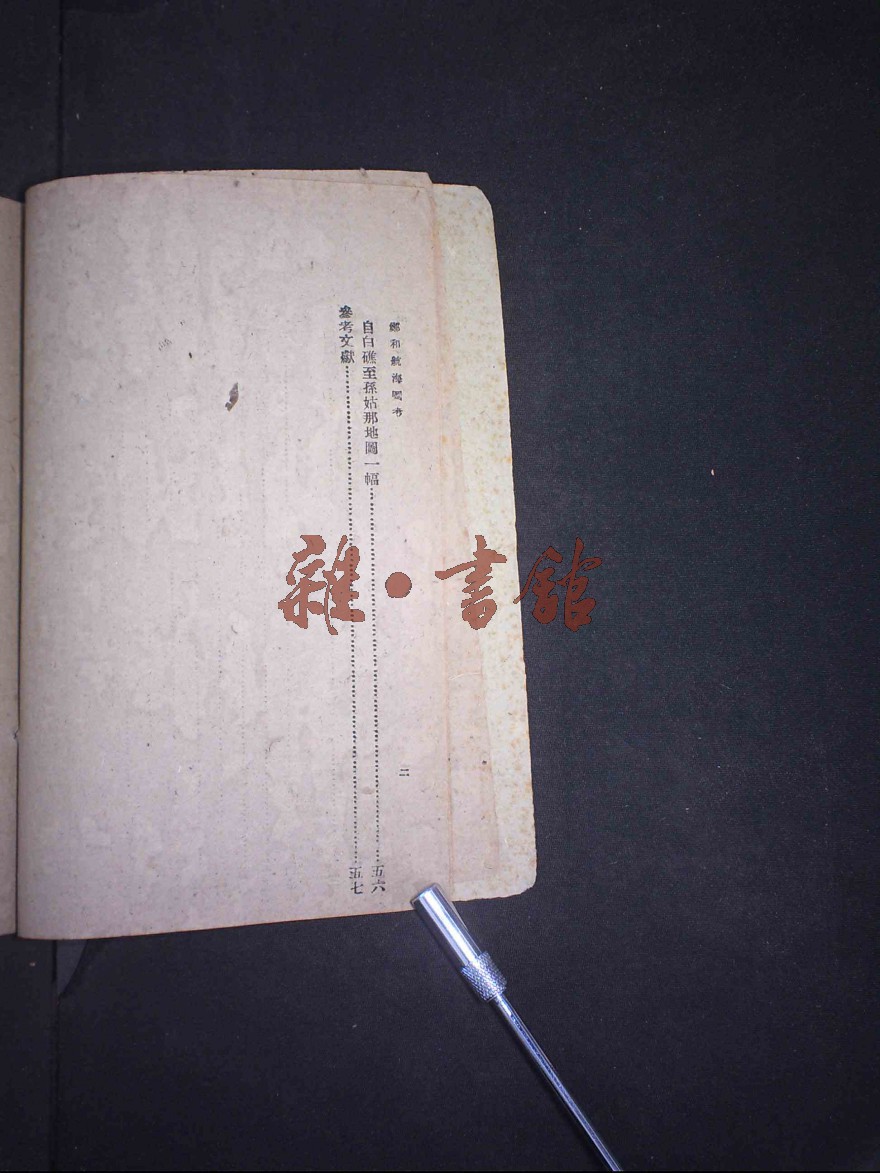 鄭和航海圖考
二
自白礁至孫姑那地圖一幅……五六
參考文獻……五七
雜·書館